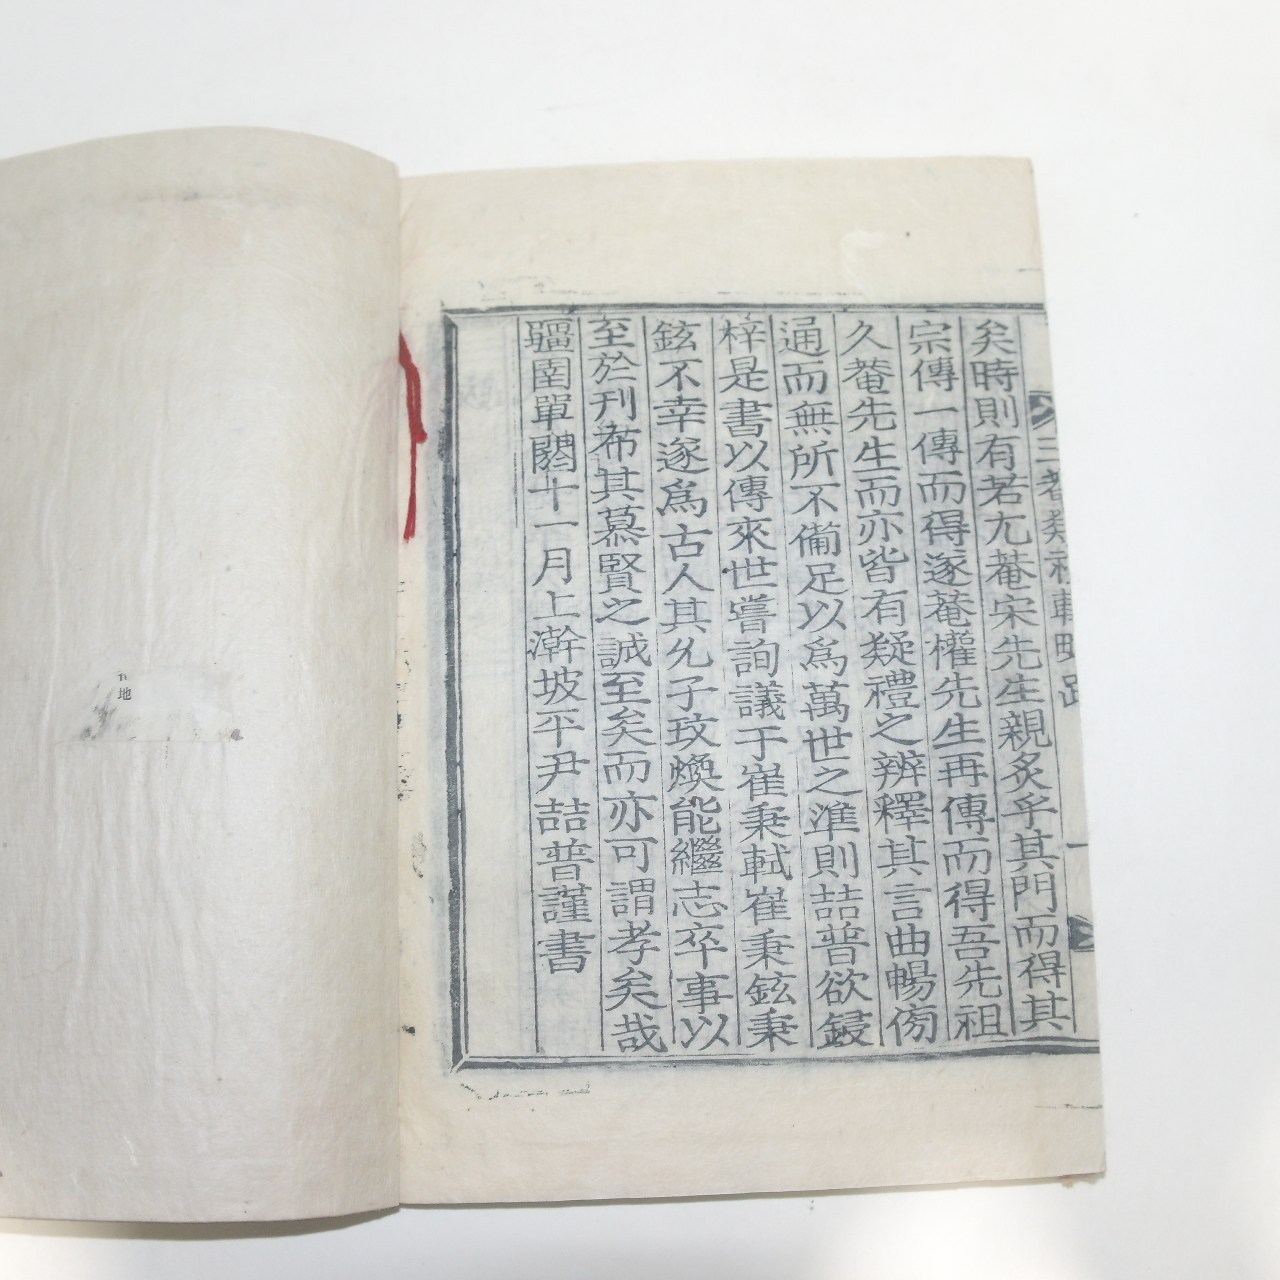 三菴疑禮輯略跋
一
矣時則有若尤菴宋先生親炙乎其門而得其
宗傳一傳而得遂菴權先生再傳而得吾先祖
久菴先生而亦皆有疑禮之辨釋其言曲暢傍
通而無所不備足以爲萬世之準則喆普欲鋟
梓是書以傳來世嘗詢議于崔秉軾崔秉鉉秉
鉉不幸遂爲古人其允子玟煥能繼志卒事以
至於刊布其慕賢之誠至矣而亦可謂孝矣哉
彊圉單閼十一月上澣坡平尹喆普謹書
地